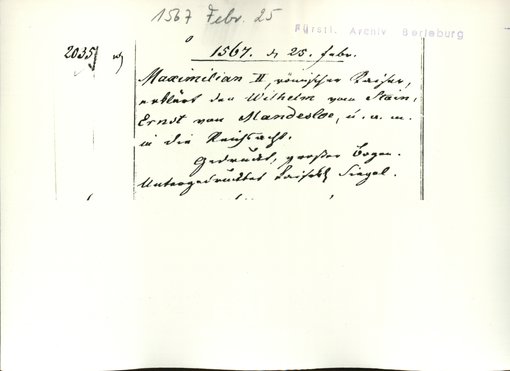 1567 Febr. 25
Fürstl. Archiv Berleburg
2035
1567. d 25. febr.
Maximilian II, römischer Kaiser,
erklärt den Wilhelm vom Stein,
Ernst von Mandesloe, u. a. m.
in die Reichsacht.
Gedruckt, großer Bogen.
Untergedrucktes Kaiserl Siegel.